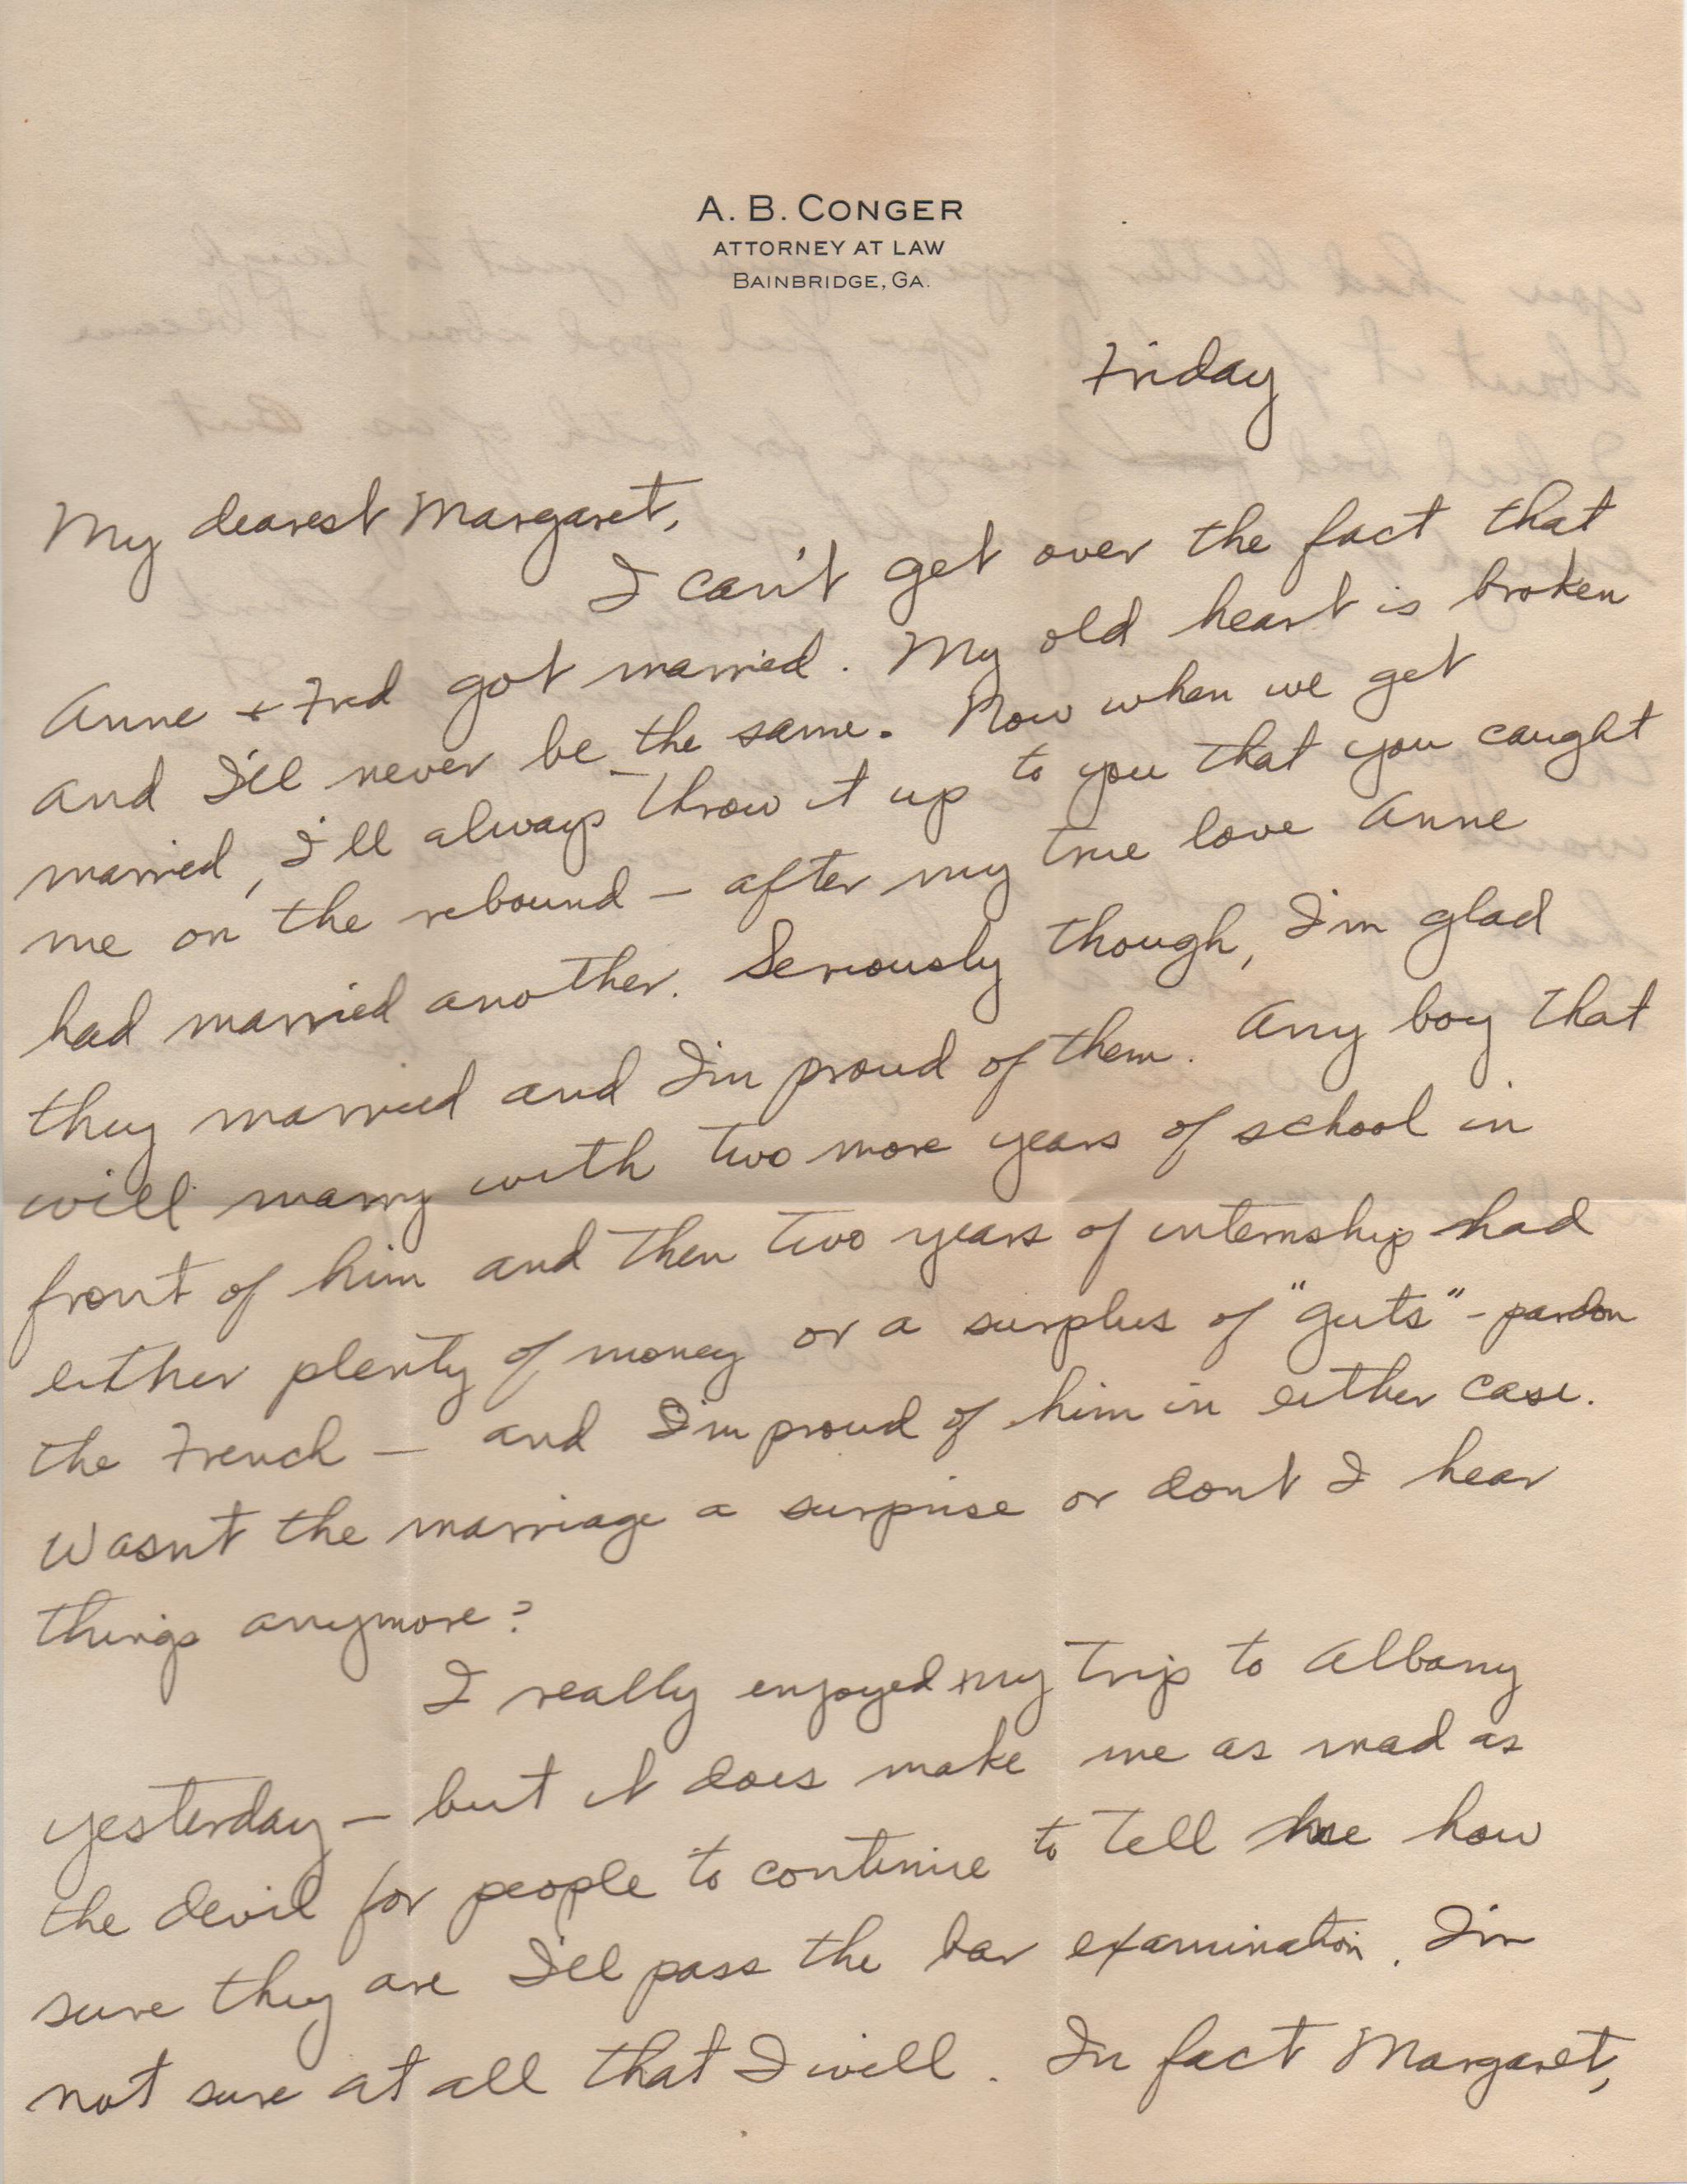 A. B. CONGER
ATTORNEY AT LAW
BAINBRIDGE, GA.
Friday
My dearest Margaret,
I can't get over the fact that
Anne + Fred got married. My old heart is broken
and I'll never be the same. Now when we get
married, I'll always throw it up to you that you caught
me on the rebound – after my true love Anne
had married another. Seriously though, I'm glad
they married and I'm proud of them. Any boy that
will marry with two more years of school in
front of him and then two years of internship had
either plenty of money or a surplus of "guts" – pardon
the French – and I'm proud of him in either case.
Wasn't the marriage a surprise or dont I hear
things anymore?
I really enjoyed my trip to Albany
yesterday – but it does make me as mad as
the devil for people to continue to tell me how
sure they are I'll pass the bar examination. I'm
not sure at all that I will. In fact Margaret,